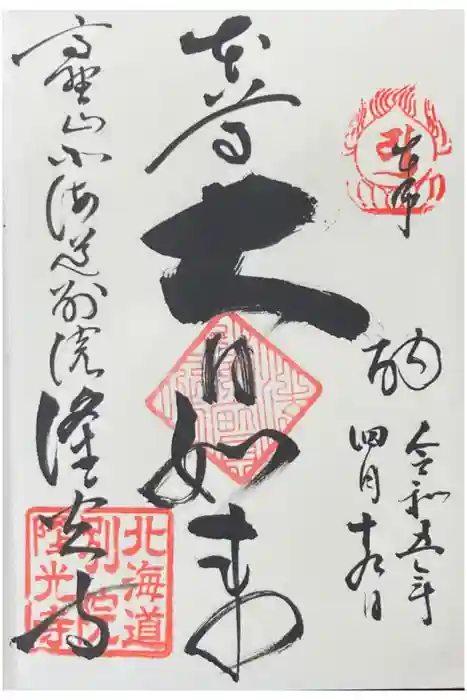 奉納
令和五年
四月十九日
本尊
大日如来
高野山北海道別院隆光寺
北海道
別院
隆光寺